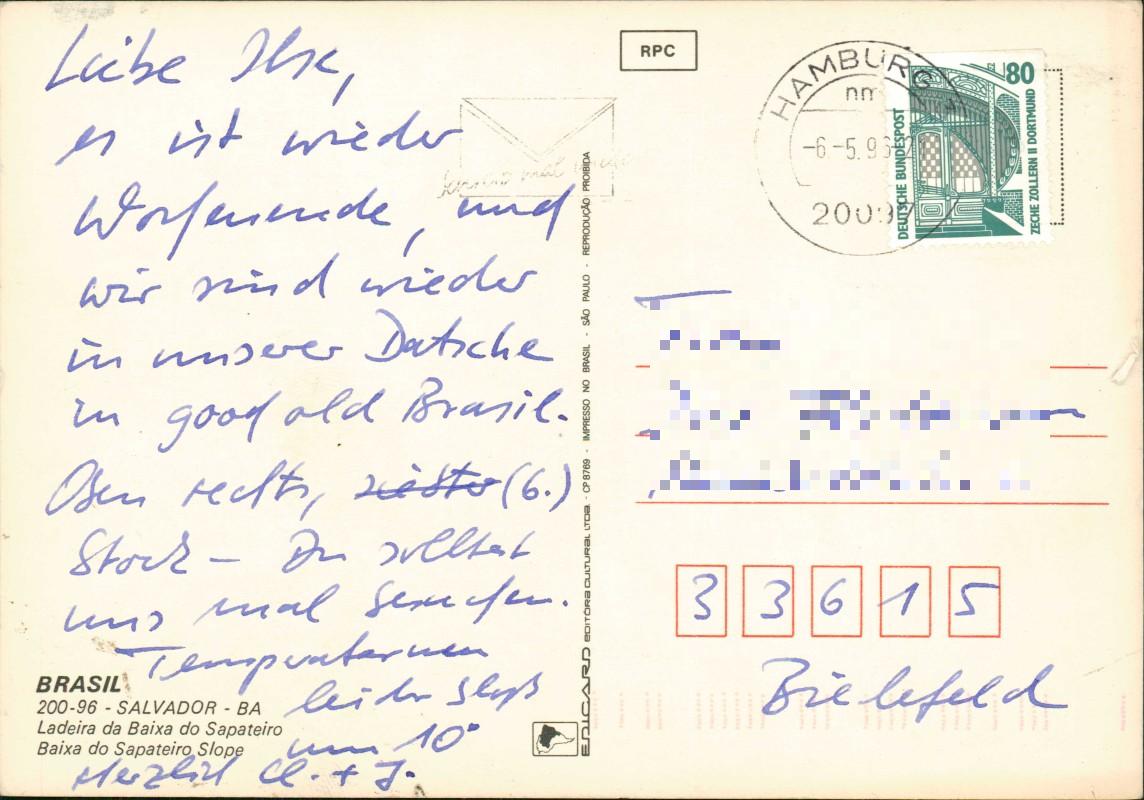 Liebe Ilse,
es ist wieder
Wochenende, und
wir sind wieder
in unserer Datsche
in good old Brasil.
Oben rechts, (6.)
Stock – Du solltest
uns mal besuchen.
Temperaturen
leider bloß
um 10°
Herzlich U. + J.
BRASIL
200-96 - SALVADOR - BA
Ladeira da Baixa do Sapateiro
Baixa do Sapateiro Slope
EDICARD EDITÔRA CULTURAL LTDA. - CP 8769 - IMPRESSO NO BRASIL - SÃO PAULO - REPRODUÇÃO PROIBIDA
RPC
HAMBURG
nm
-6.-5.96
2009
80
DEUTSCHE BUNDESPOST
ZECHE ZOLLERN II DORTMUND
33615
Bielefeld